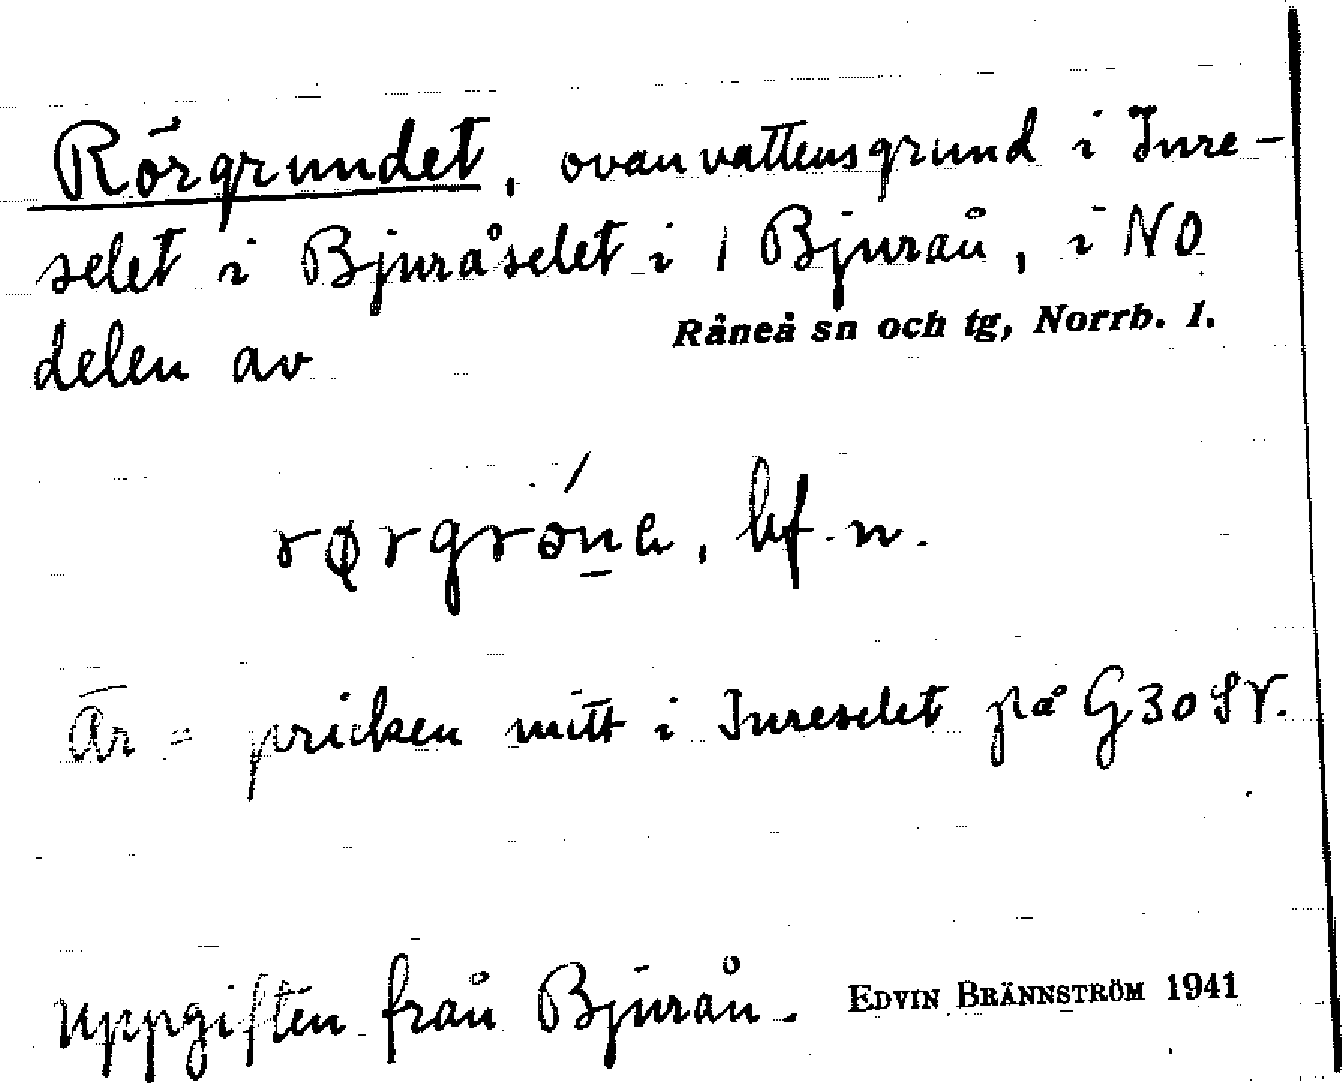 Rörgrundet, ovanvattensgrund i Inre-
selet i Bjuråselet i 1 Bjuraå, i NO
delen av Råneå sn och tg, Norrb. l.
bf. n.
Är = pricken mitt i Inreselet på G30SV.
Uppgiften från Bjurån. EDVIN BRÄNNSTRÖM 1941